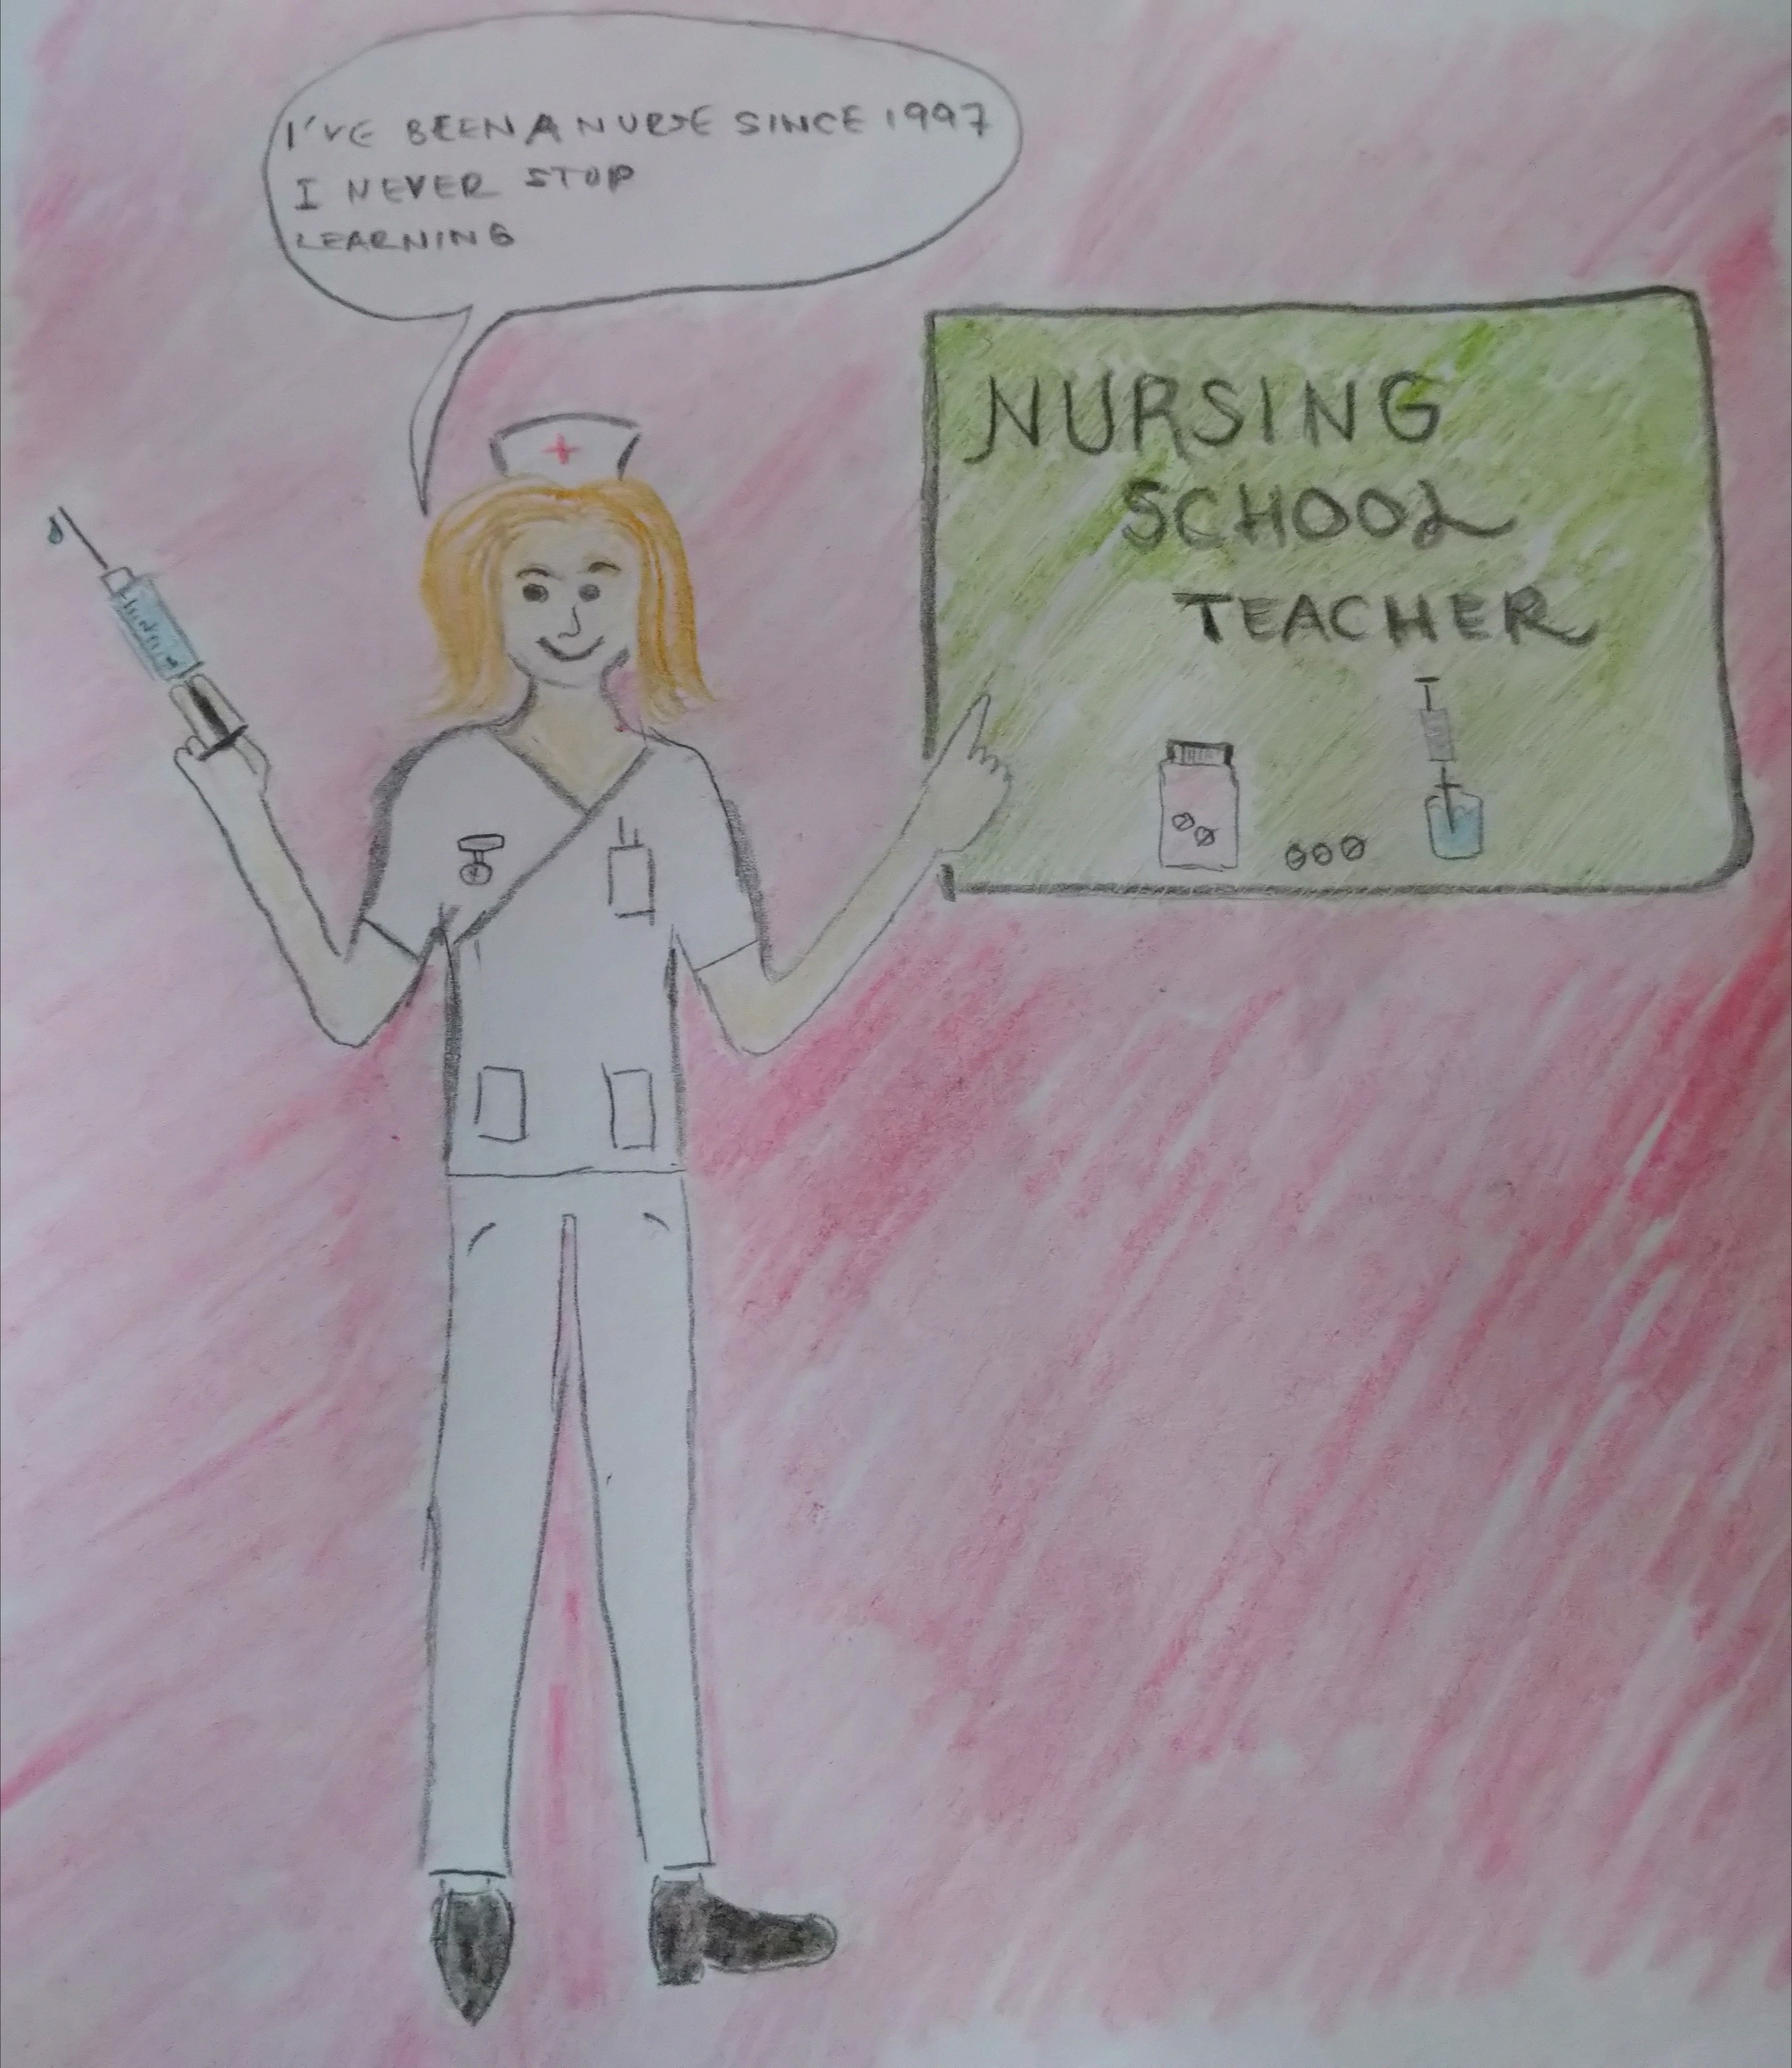 I'VE BEEN A NURSE SINCE 1997
I NEVER STOP
LEARNING
NURSING
SCHOOL
TEACHER